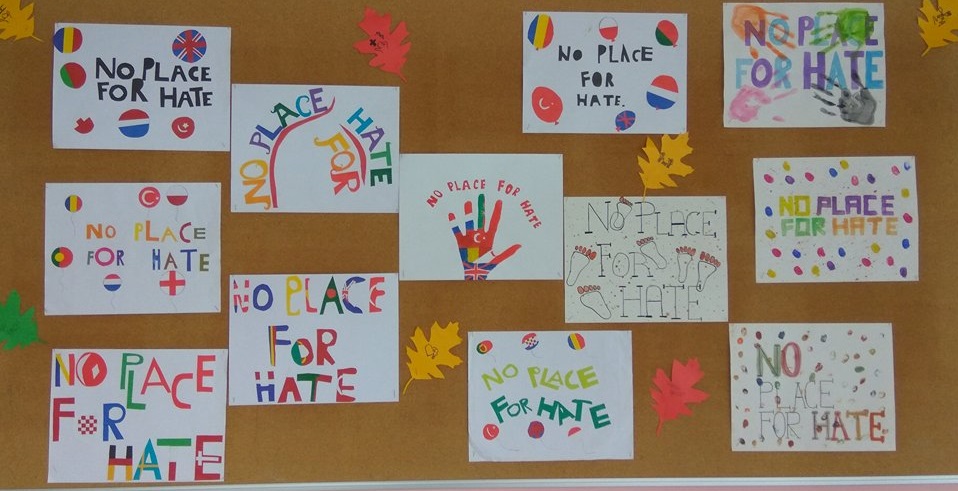 NO PLACE
FOR HATE
NO PLACE
FOR
HATE
NO PLACE
FOR
HATE.
NO PLACE
FOR HATE
NO PLACE FOR HATE
NO PLACE
FOR HATE
NO PLACE
FOR
HATE
NO PLACE
FOR HATE
NO PLACE
FOR
HATE
NO PLACE
FOR
HATE
NO PLACE
FOR HATE
NO
PLACE
FOR HATE